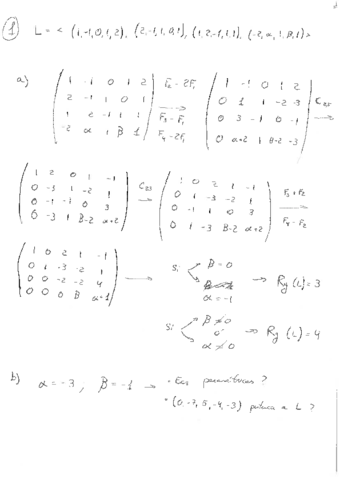 1 L = < (1,-1,0,1,2), (2,-1,1,0,1), (1,2,-1,1,1), (-2,α,1,β,1)>
a)
1 -1 0 1 2
2 -1 1 0 1
1 2 -1 1 1
-2 α 1 β 1
F2 - 2F1
F3 - F1
1 -1 0 1 2
0 1 1 -2 -3
0 3 -1 0 -1
0 α+2 1 β-2 -3
1 2 0 1 -1
0 -3 1 -2 1
0 -1 -1 0 3
0 -3 1 β-2 α+2
1 0 2 1 -1
0 1 -3 -2 1
0 -1 1 0 3
0 1 -3 β-2 α+2
F3 + F2
F4 - F2
1 0 2 1 -1
0 1 -3 -2 1
0 0 -2 -2 4
0 0 0 β α+1
Si β = 0
α = -1
→ Rg (L) = 3
Si β ≠ 0
o
α ≠ 0
→ Rg (L) = 4
b) α = -3, β = -1 → · Ecs paramétricas ?
· (0,-7,5,-4,-3) a L ?